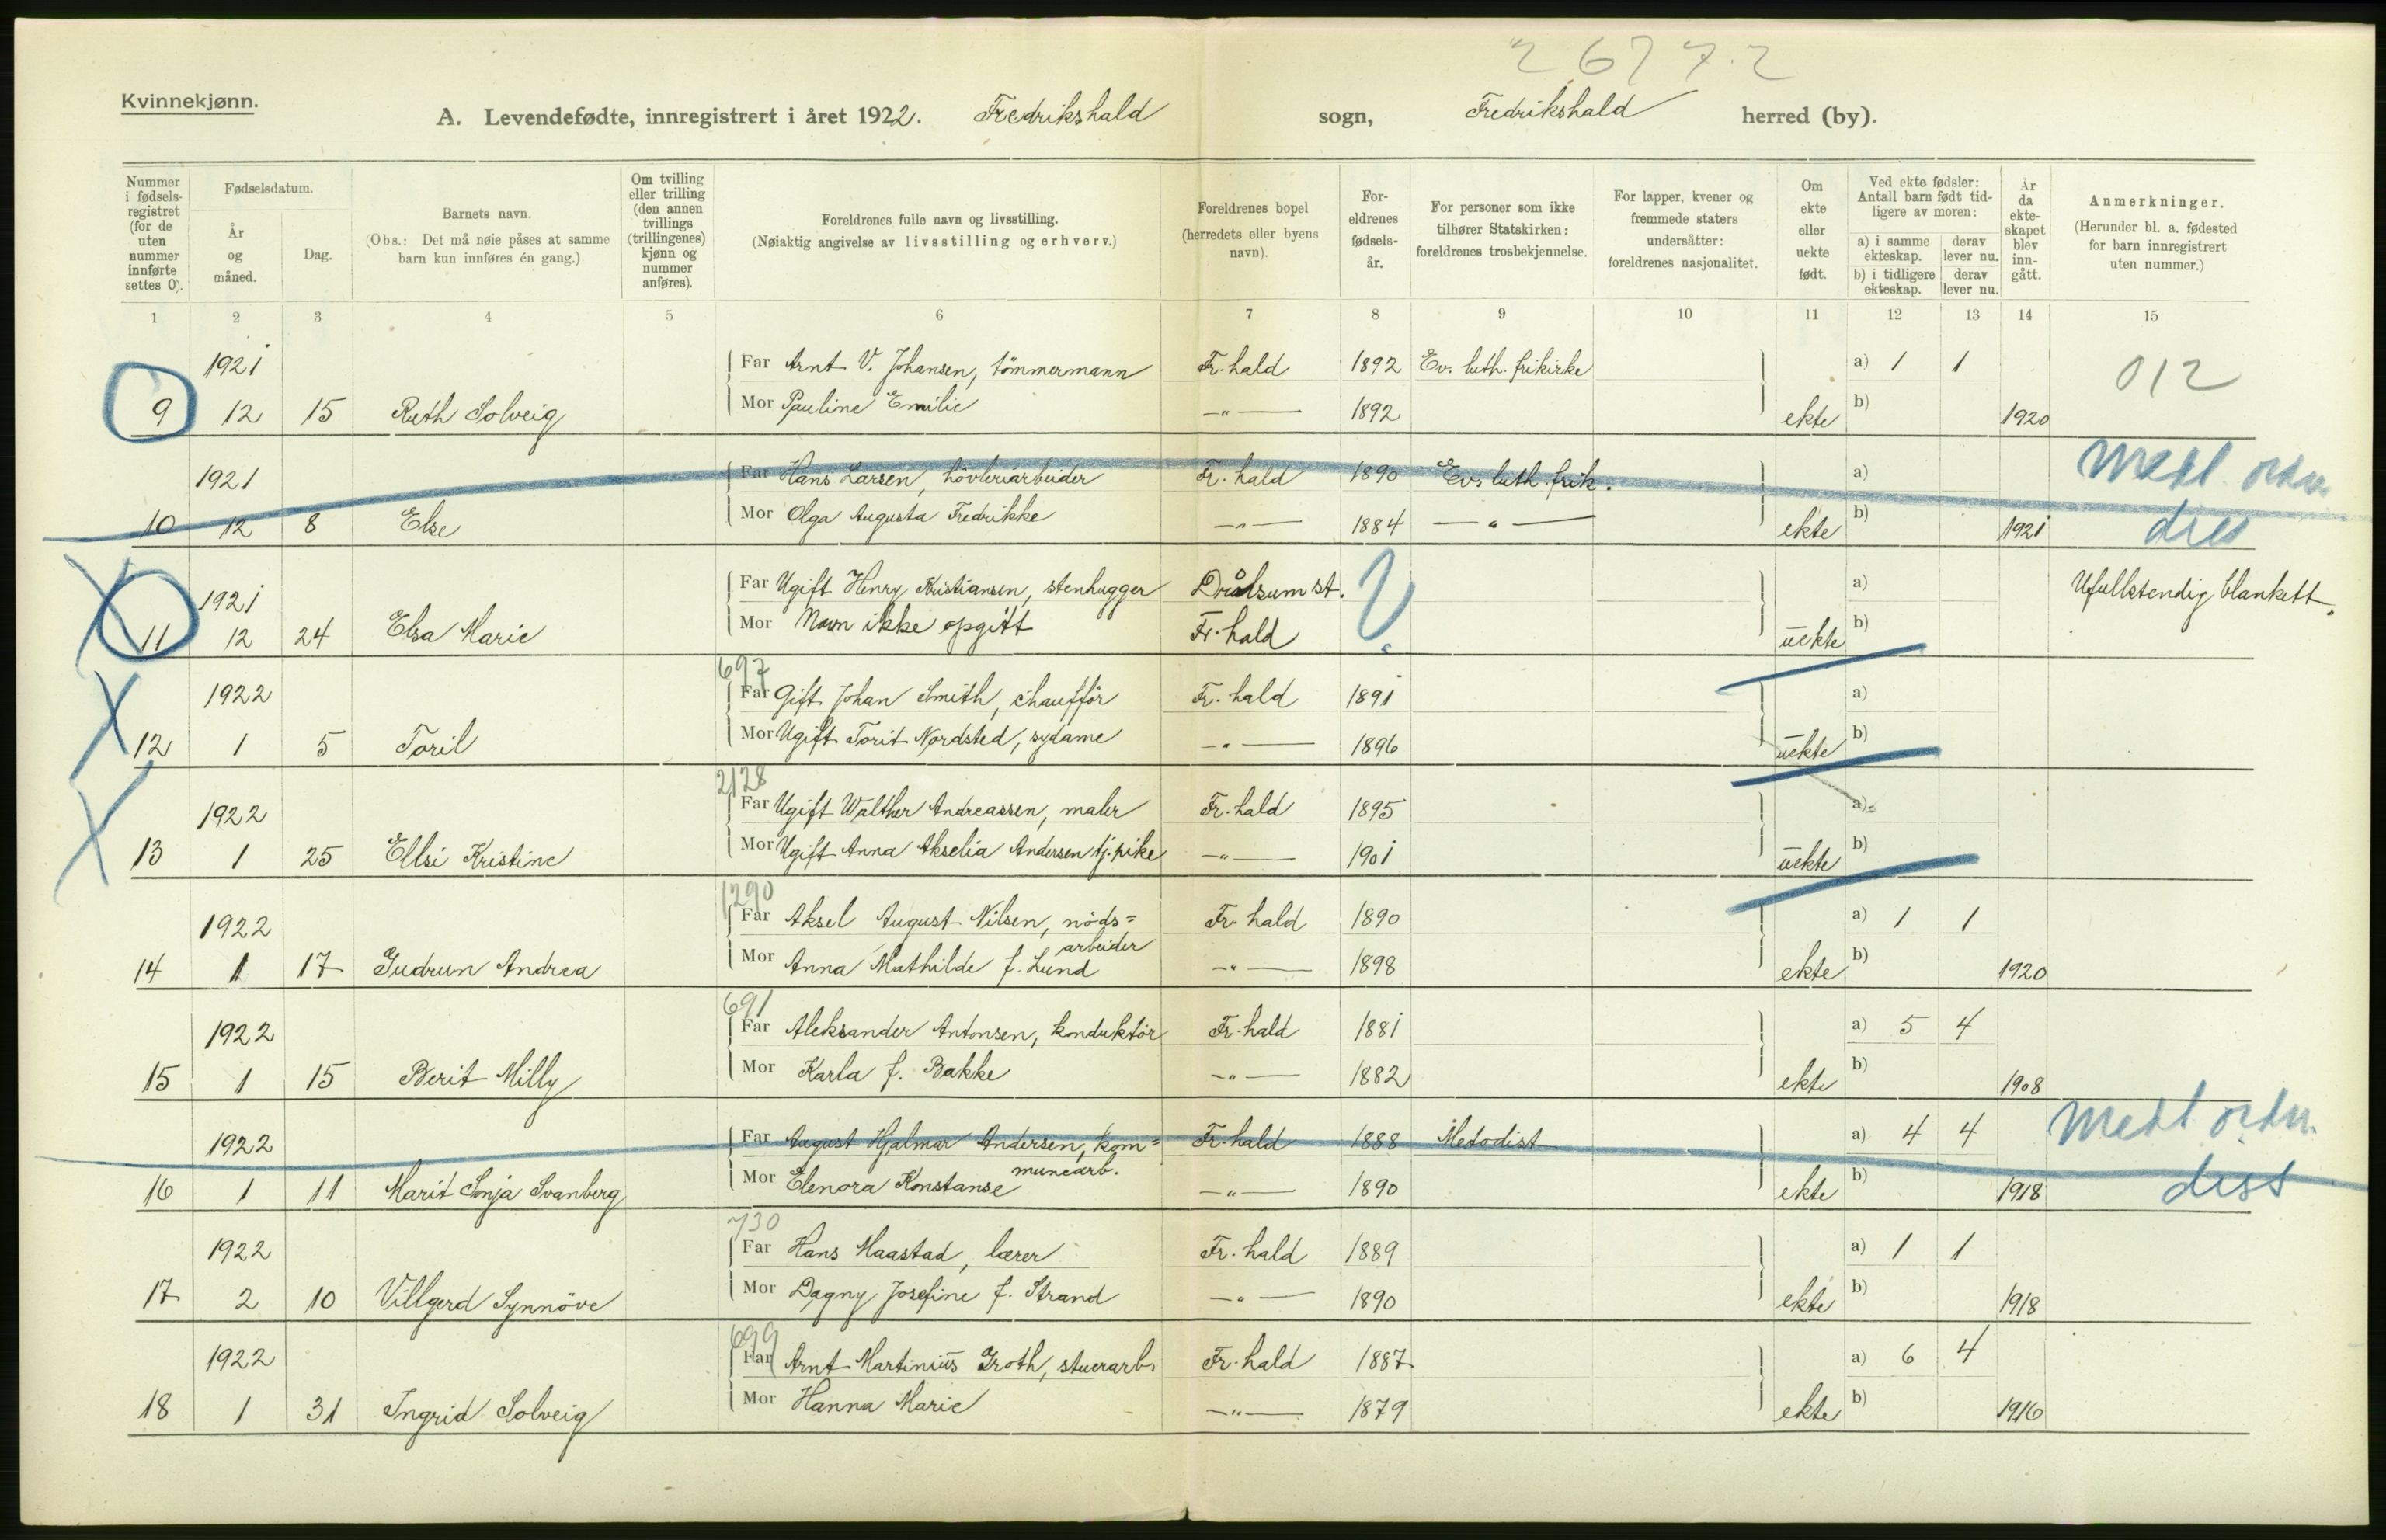 2 6 7 7 . 2
Kvinnekjønn.
A. Levendefødte, innregistrert i året 1922. Fredrikshald sogn, Fredrikshald herred (by).
Nummer i fødselsregistret (for de uten nummer innførte settes 0).
Fødselsdatum.
År og måned.
Dag.
Barnets navn.
(Obs.: Det må nøie påses at samme barn kun innføres én gang.)
Om tvilling eller trilling (den annen tvillings (trillingenes) kjønn og nummer anføres).
Foreldrenes fulle navn og livsstilling.
(Nøiaktig angivelse av livsstilling og erhverv.)
Foreldrenes bopel (herredets eller byens navn).
Foreldrenes fødselsår.
For personer som ikke tilhører Statskirken: foreldrenes trosbekjennelse.
For lapper, kvener og fremmede staters undersåtter: foreldrenes nasjonalitet.
Om ekte eller uekte født.
Ved ekte fødsler: Antall barn født tidligere av moren:
a) i samme ekteskap. derav lever nu.
b) i tidligere ekteskap. derav lever nu.
År da ekteskapet blev inngått.
Anmerkninger.
(Herunder bl. a. fødested for barn innregistrert uten nummer.)
1 2 3 4 5 6 7 8 9 10 11 12 13 14 15
1921 Far Arnt V. Johansen, tömmermann Fr. hald 1892 Ev. luth. frikirke a) 1 1 012
9 12 15 Ruth Solveig Mor Pauline Emilie —"— 1892 ekte b) 1920
1921 Far Hans Larsen, hövleriarbeider Fr. hald 1890 Ev. luth. frik. a)
10 12 8 Else Mor Olga Augusta Fredrikke —"— 1884 —"— ekte b) 1921
1921 Far Ugift Henry Kristiansen, stenhugger st. a) Ufullstendig blankett.
11 12 24 Elsa Marie Mor Navn ikke opgitt Fr. hald ? uekte b)
697
1922 Far Gift Johan Smith, chaufför Fr. hald 1891 a)
12 1 5 Toril Mor Ugift Torit Nordsted, sydame —"— 1896 uekte b)
2128
1922 Far Ugift Walther Andreassen, maler Fr. hald 1895 a)
13 1 25 Ellsi Kristine Mor Ugift Anna Akselia Andersen tj. pike —"— 1901 uekte b)
1290
1922 Far Aksel August Nilsen, nöds= Fr. hald 1890 a) 1 1
arbeider
14 1 17 Gudrun Andrea Mor Anna Mathilde f. Lund —"— 1898 ekte b) 1920
691
1922 Far Aleksander Antonsen, konduktör Fr. hald 1881 a) 5 4
15 1 15 Berit Milly Mor Karla f. Bakke —"— 1882 ekte b) 1908
1922 Far August Hjalmar Andersen, kom= Fr. hald 1888 Metodist a) 4 4
munearb.
16 1 11 Marit Sonja Svanberg Mor Elenora Konstanse —"— 1890 ekte b) 1918 diss
730
1922 Far Hans Maastad, lærer Fr. hald 1889 a) 1 1
17 2 10 Villgerd Synnöve Mor Dagny Josefine f. Strand —"— 1890 ekte b) 1918
699
1922 Far Arnt Martinius Groth, stuerarb. Fr. hald 1887 a) 6 4
18 1 31 Ingrid Solveig Mor Hanna Marie —"— 1879 ekte b) 1916